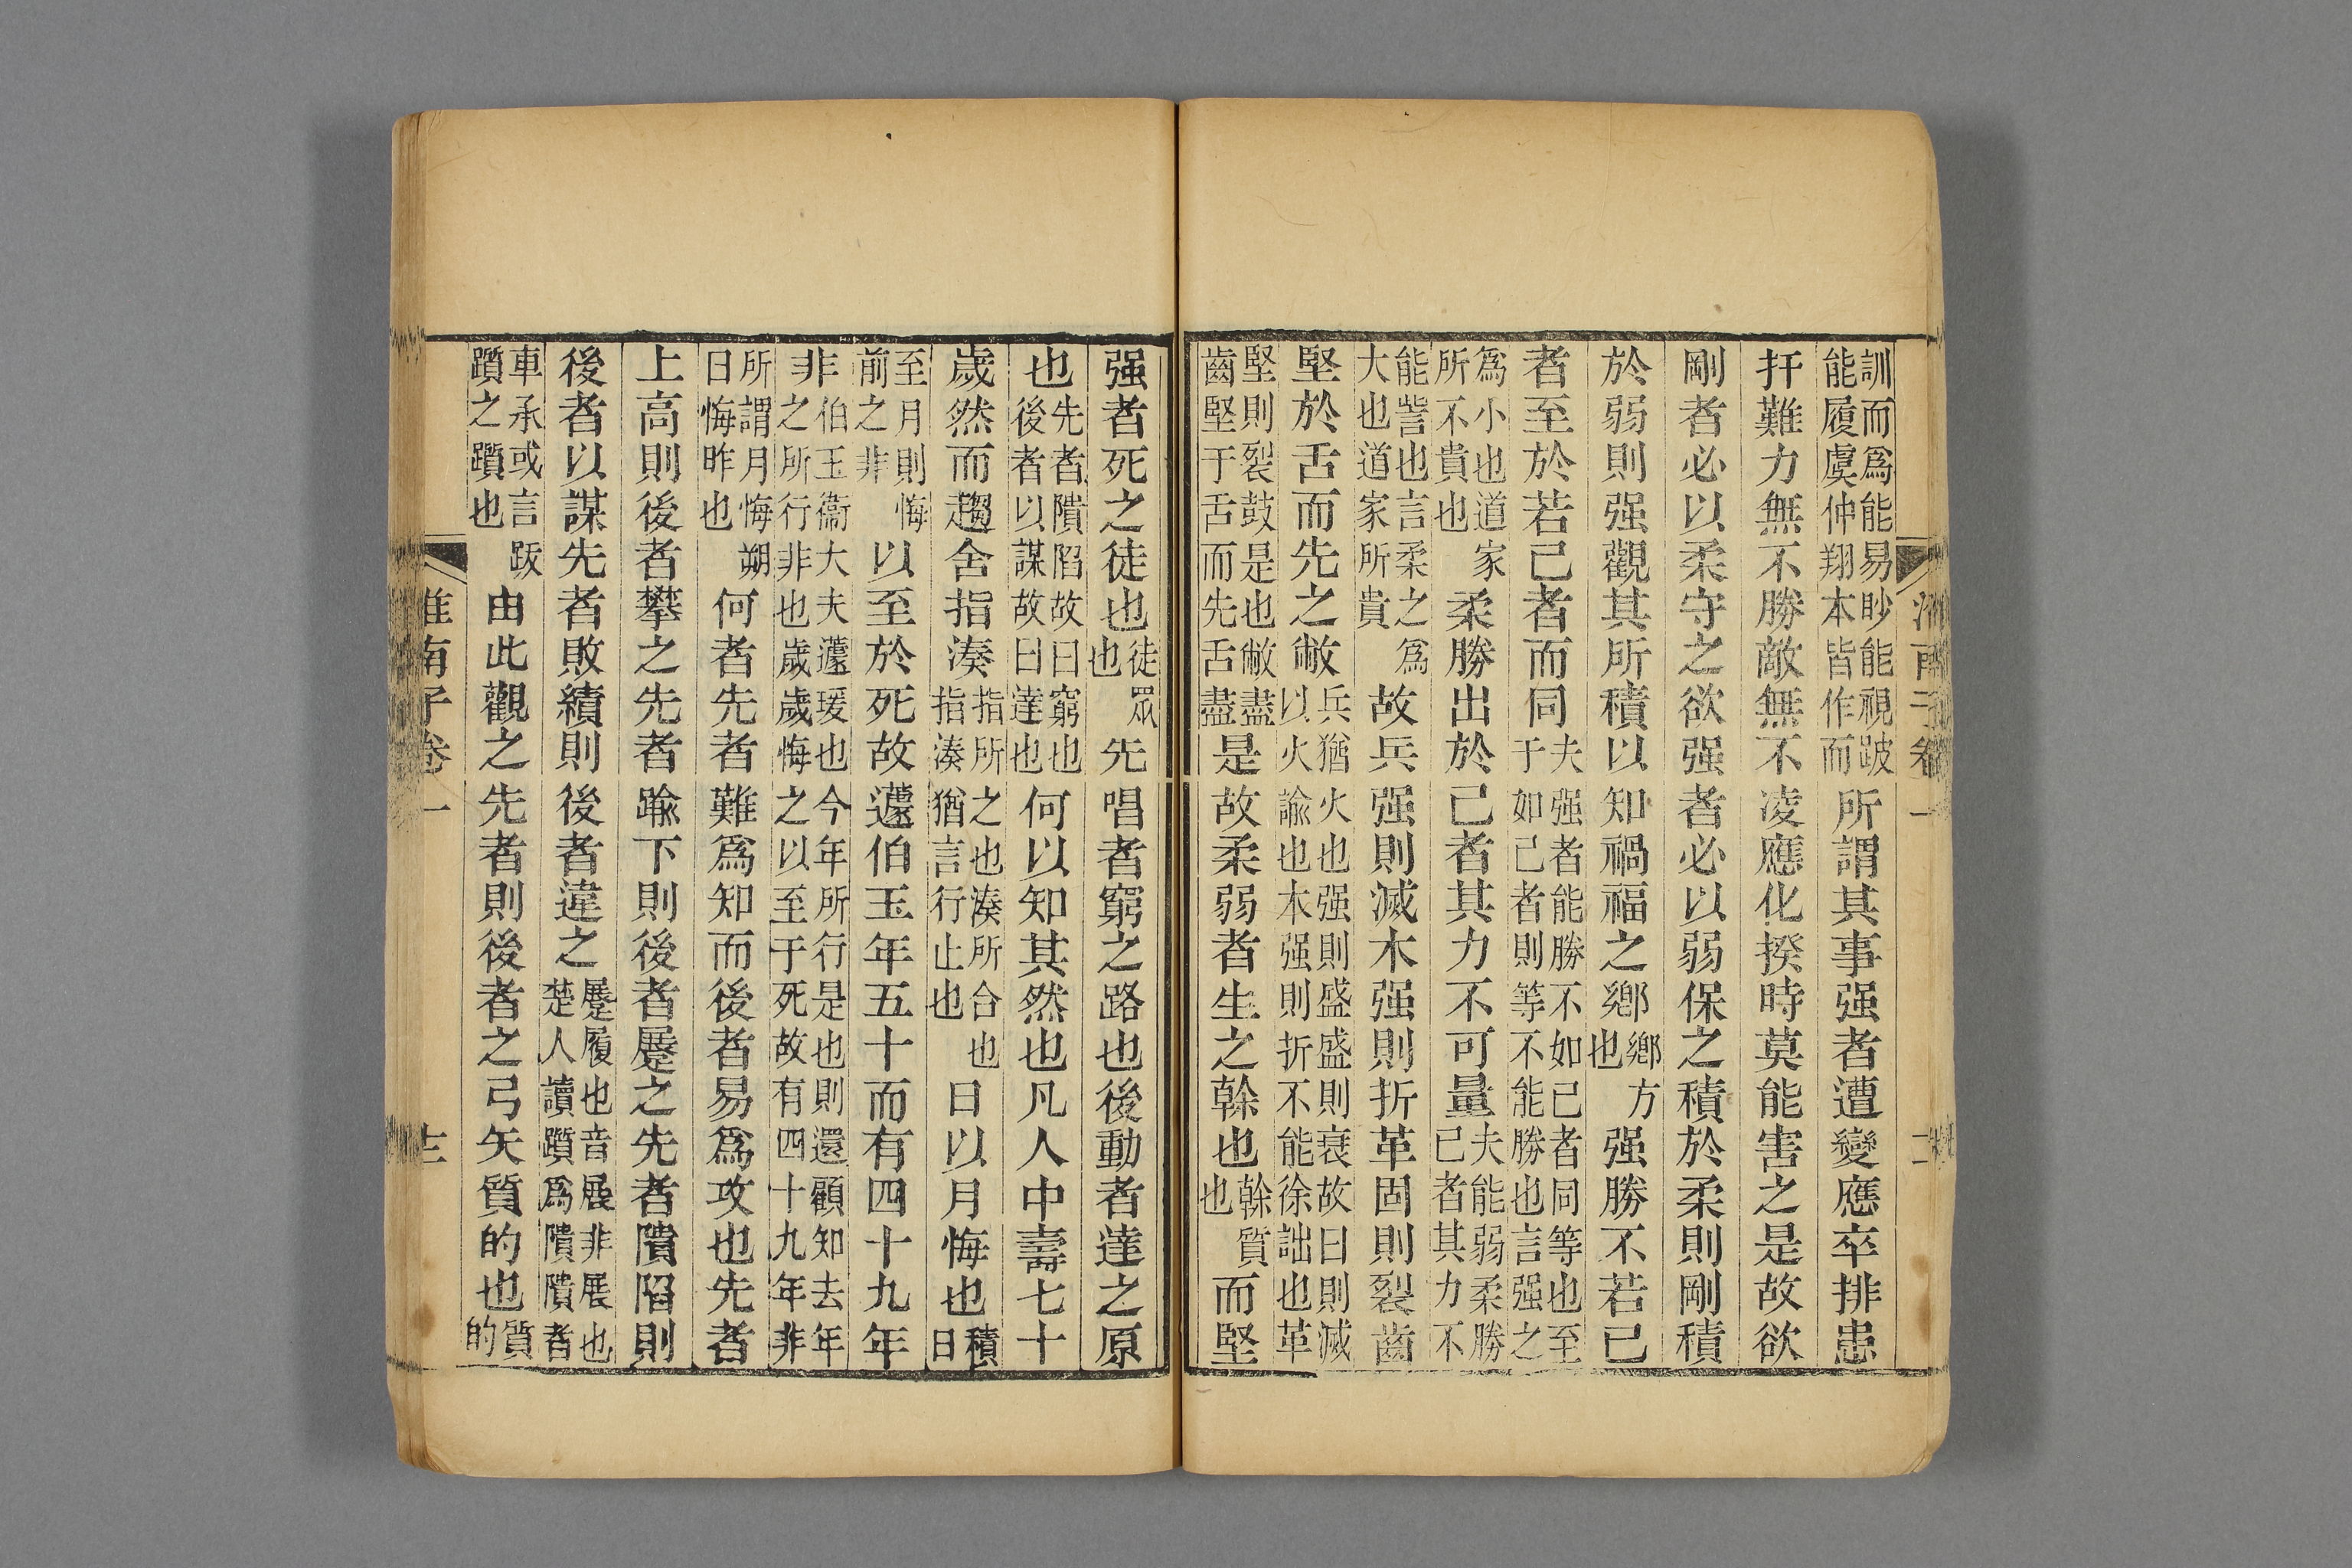 訓而爲能易眇能視跛能履虞仲翔本皆作而所謂其事强者遭變應卒排患
扞難力無不勝敵無不凌應化揆時莫能害之是故欲
剛者必以柔守之欲强者必以弱保之積於柔則剛積
於弱則强觀其所積以知禍福之鄉鄉方也强勝不若己
者至於若己者而同夫强者能勝不如己者同等也至于如己者則等不能勝也言强之
爲小也道家所不貴也柔勝出於己者其力不可量夫能弱柔勝己者其力不
能訾也言柔之爲大也道家所貴故兵强則滅木强則折革固則裂齒
堅於舌而先之敝兵猶火也强則盛盛則衰故曰則滅以火諭也木强則折不能徐詘也革
堅則裂鼓是也敝盡齒堅于舌而先舌盡是故柔弱者生之榦也榦質也而堅
强者死之徒也徒眾也先唱者窮之路也後動者達之原
也先者隤陷故曰窮也後者以謀故曰達也何以知其然也凡人中壽七十
歲然而趨舍指湊指所之也湊所合也指湊猶言行止也日以月悔也積日
至月則悔前之非以至於死故蘧伯玉年五十而有四十九年
非伯玉衞大夫蘧瑗也今年所行是也則還顧知去年之所行非也歲歲悔之以至于死故有四十九年非
所謂月悔朔日悔昨也何者先者難爲知而後者易爲攻也先者
上高則後者攀之先者踰下則後者蹷之先者隤陷則
後者以謀先者敗績則後者違之蹷履也音展非展也楚人讀躓爲隤隤者
車承或言跋躓之躓也由此觀之先者則後者之弓矢質的也質的
淮南子卷一